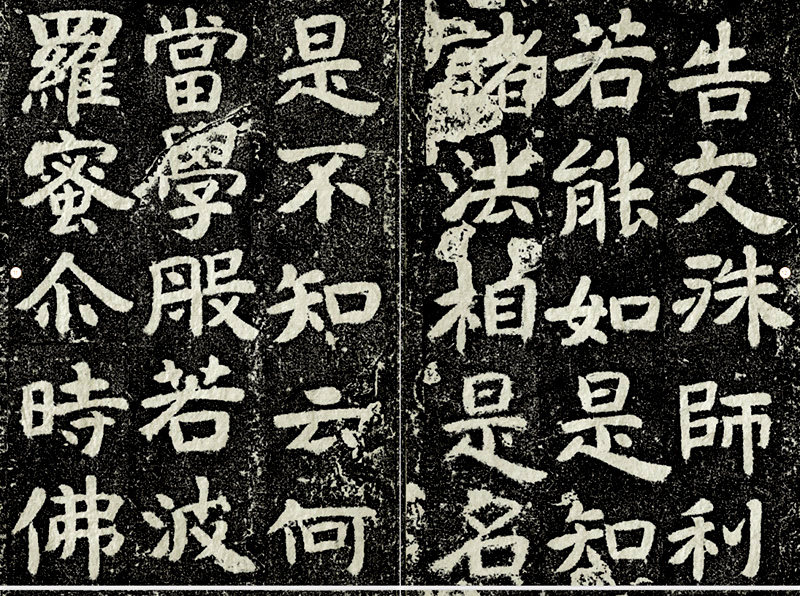 告文洙師利
若能如是知
諸法相是名
是不知云何
當學般若波
羅蜜尒時佛